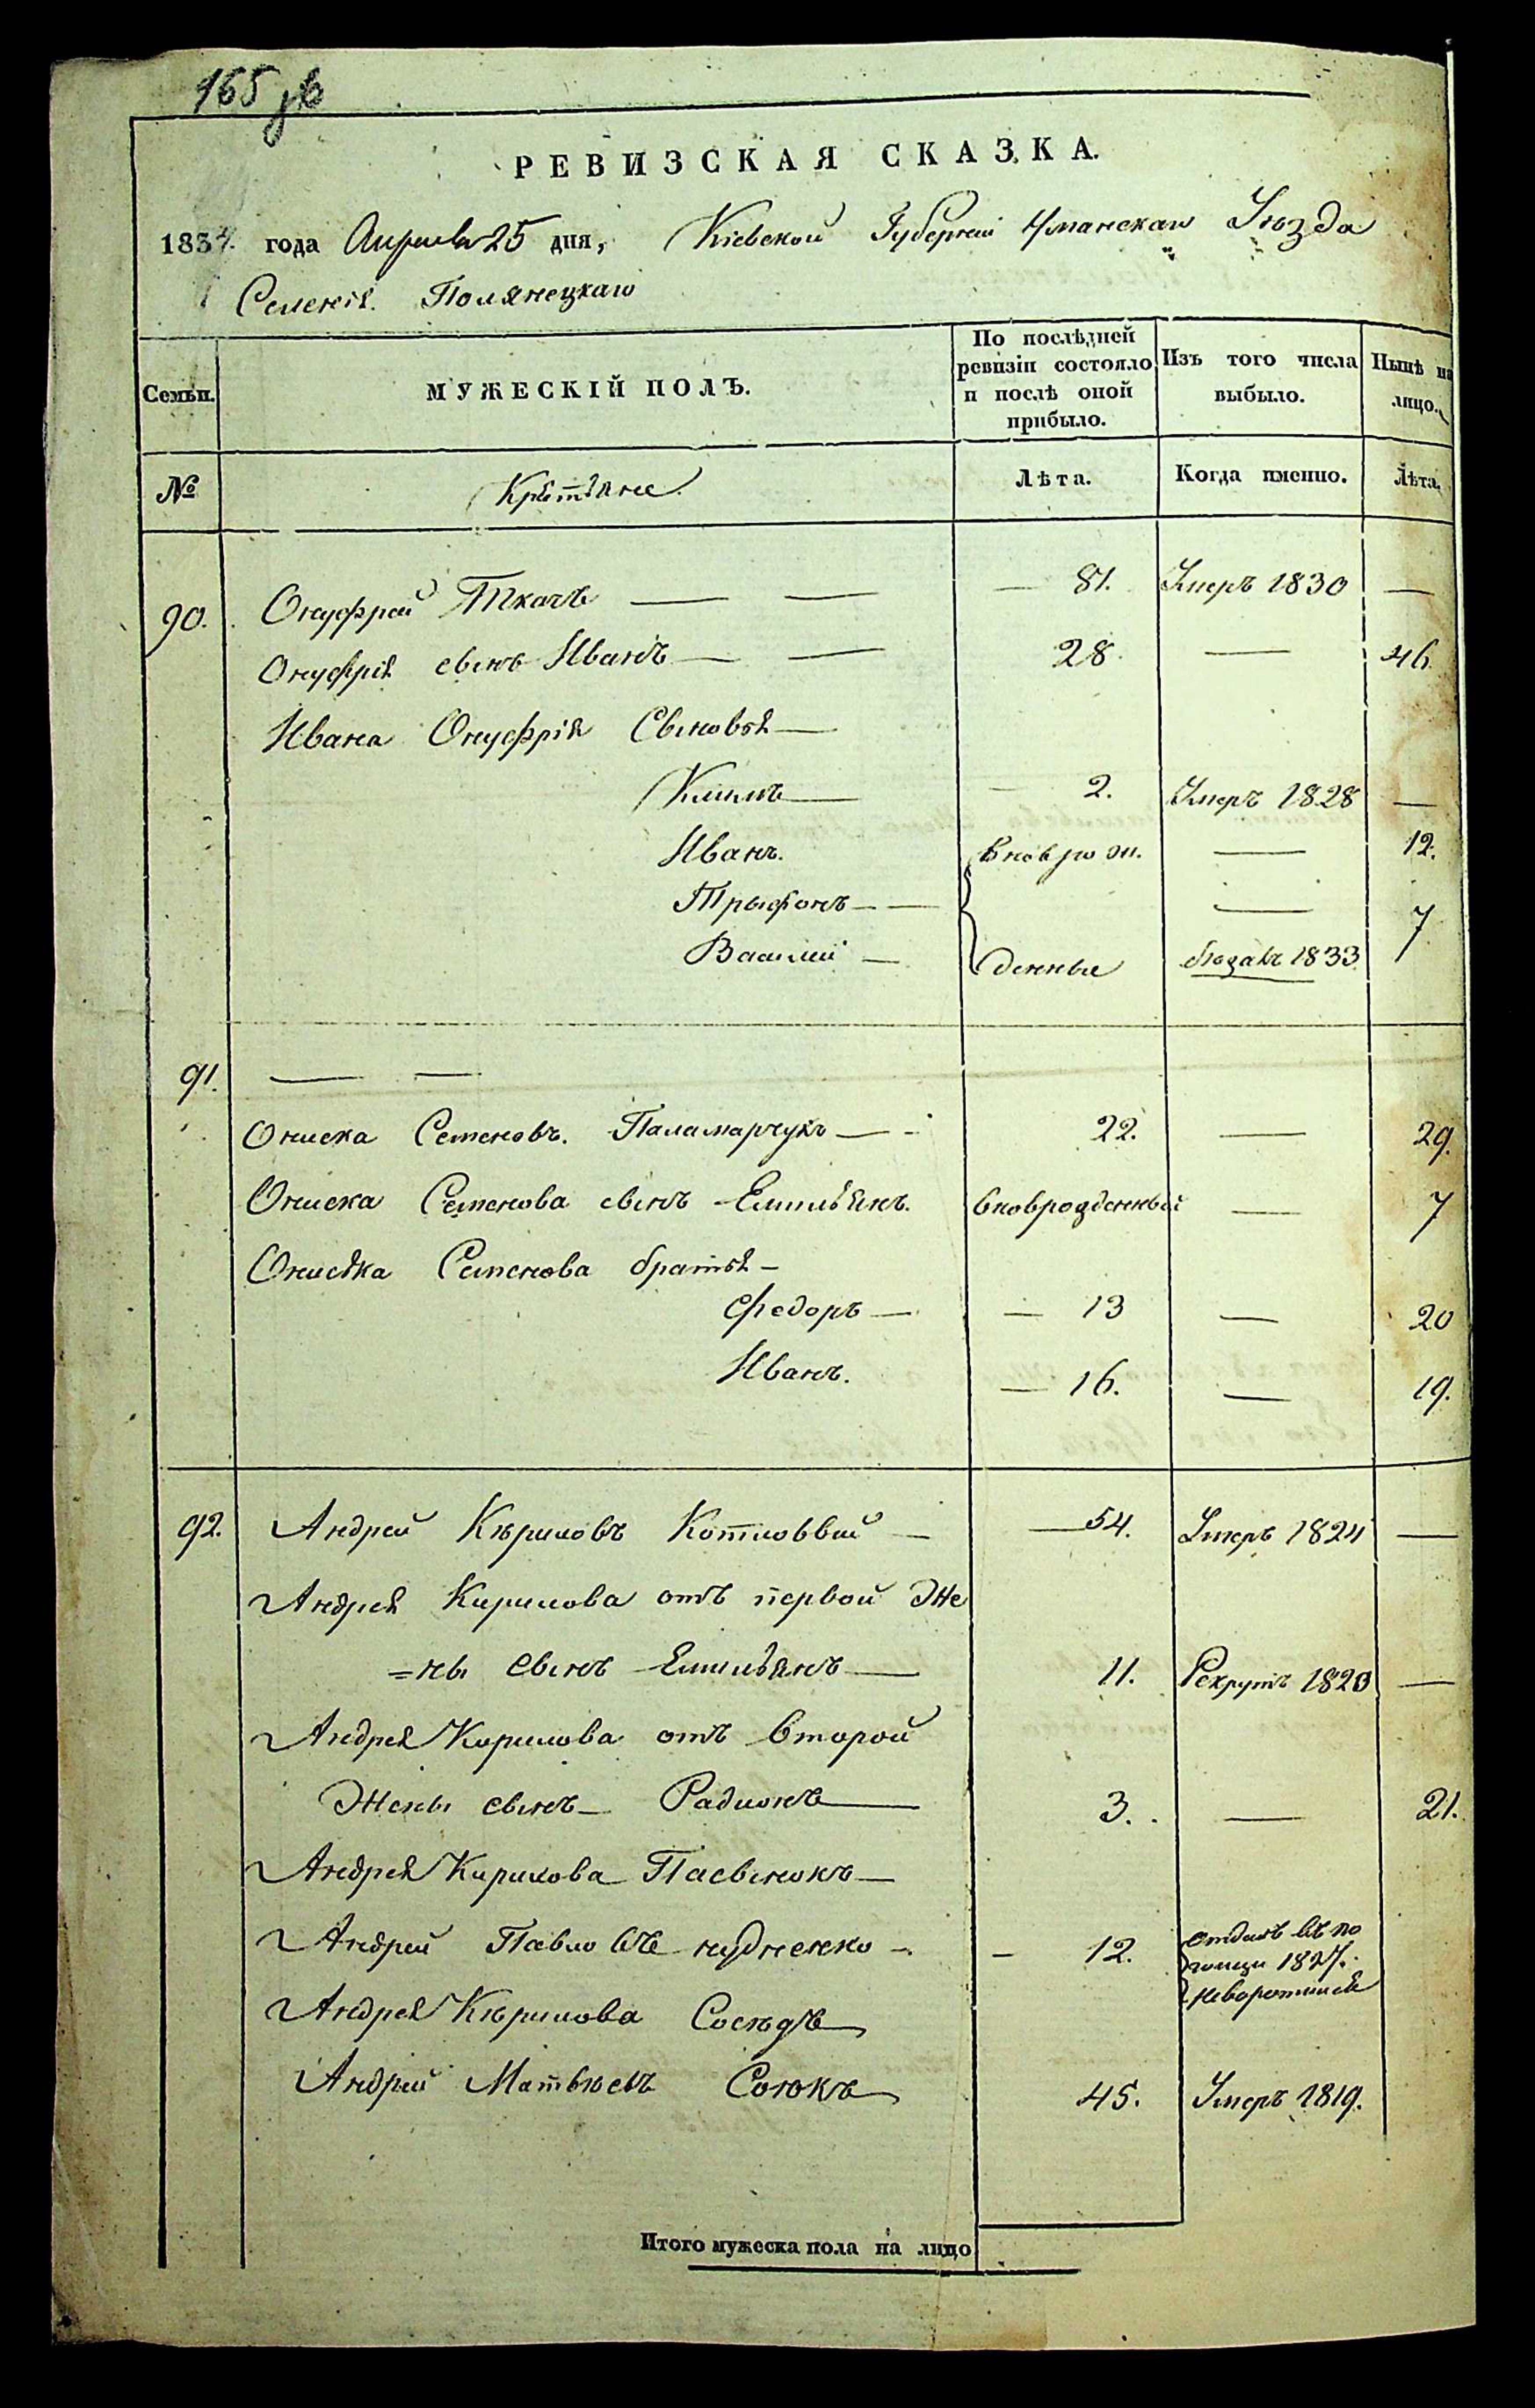 165 зв
РЕВИЗСКАЯ СКАЗКА.
1834. года Апреля 25 дня, Кіевской Губерніи Уманскаго Уѣзда
Селенія Полянецкаго
Семьи. МУЖЕСКІЙ ПОЛЪ. По послѣдней ревизіи состояло и послѣ оной прибыло. Изъ того числа выбыло. Нынѣ на лицо.
№ Крестьяне Лѣта. Когда именно. Лѣта.
90. Онуфрей Ткачъ — — — 81. Умеръ 1830 —
Онуфрія сынъ Иванъ — — 28. — 46.
Ивана Онуфрія Сыновья —
Климъ — — 2. Умеръ 1828 —
Иванъ. Вновь ро — 12.
Трыфонъ — — — 7
Василій — жденные 1833
91. — —
Ониска Семеновъ Паламарчукъ — 22. — 29.
Ониска Семенова сынъ Емильянъ. вноврожденный — 7
Ониська Семенова братья —
Федоръ — — 13 — 20
Иванъ. — 16. — 19.
92. Андрей Кѣриловъ — — 54. Умеръ 1824 —
Андрея Кирилова отъ первой Же
=ны сынъ Емильянъ — 11. Рекрутъ 1820 —
Андрея Кирилова отъ второй
Жены сынъ — Радионъ — 3. — 21.
Андрея Кирилова Пасынокъ —
Андрей Павловъ — — 12. отданъ въ по
лиции 1827.
Андрея Кѣрилова Сосѣдъ
Андрей Матвѣевъ Союкъ 45. Умеръ 1819.
Итого мужеска пола на лицо